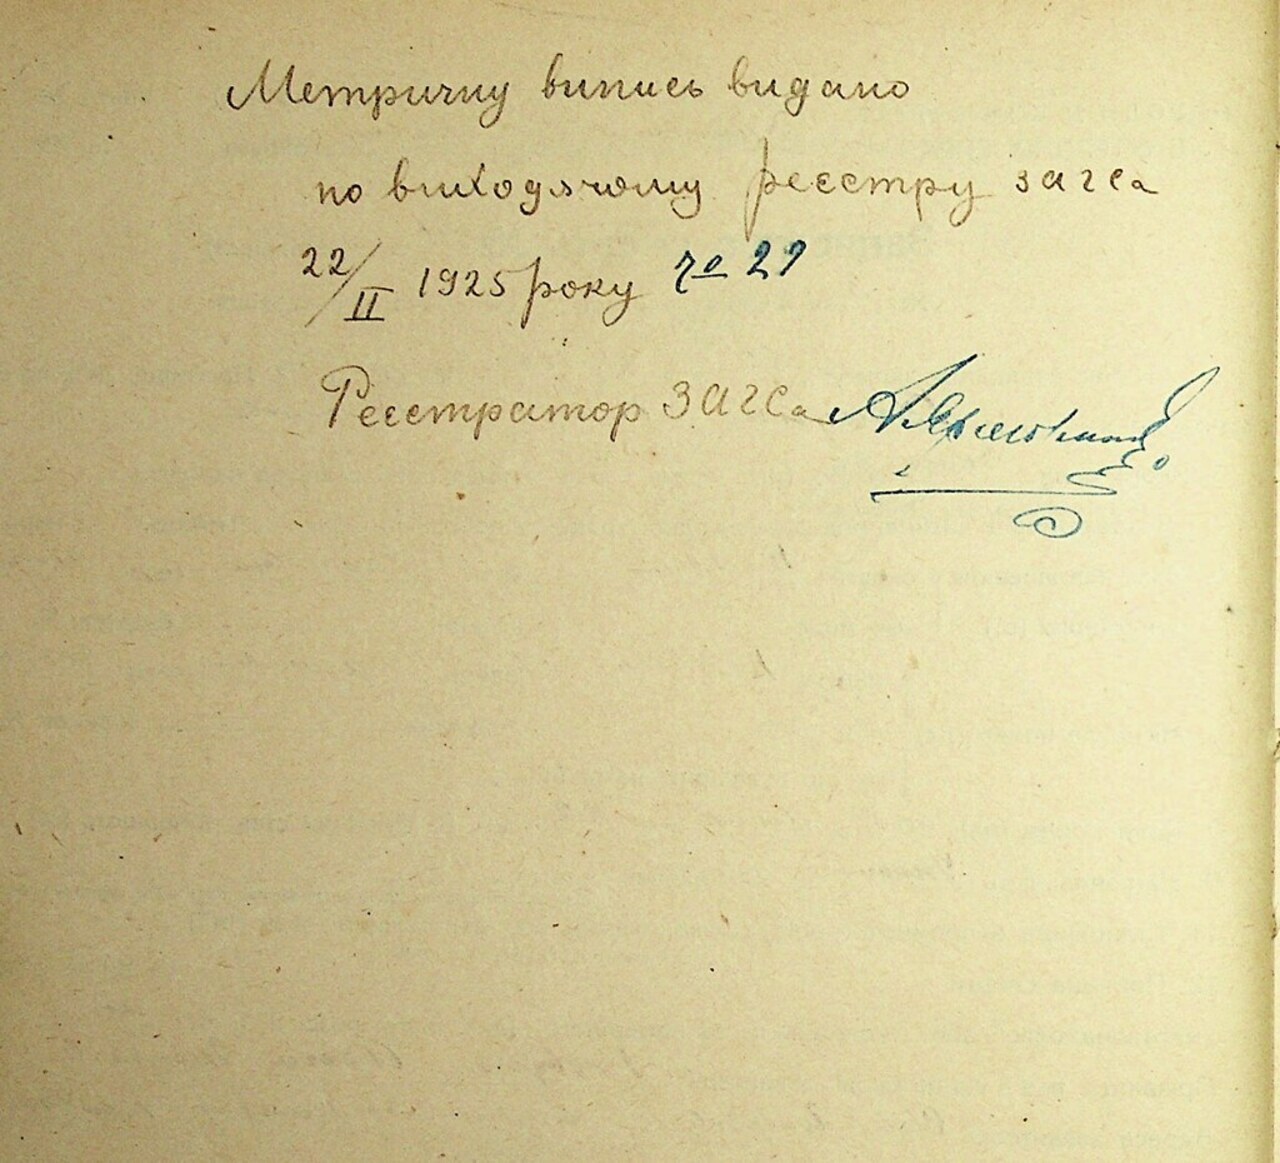 Метричну випись видано
по виходячому реєстру загса
22/II 1925 року № 29
Реєстратор загса